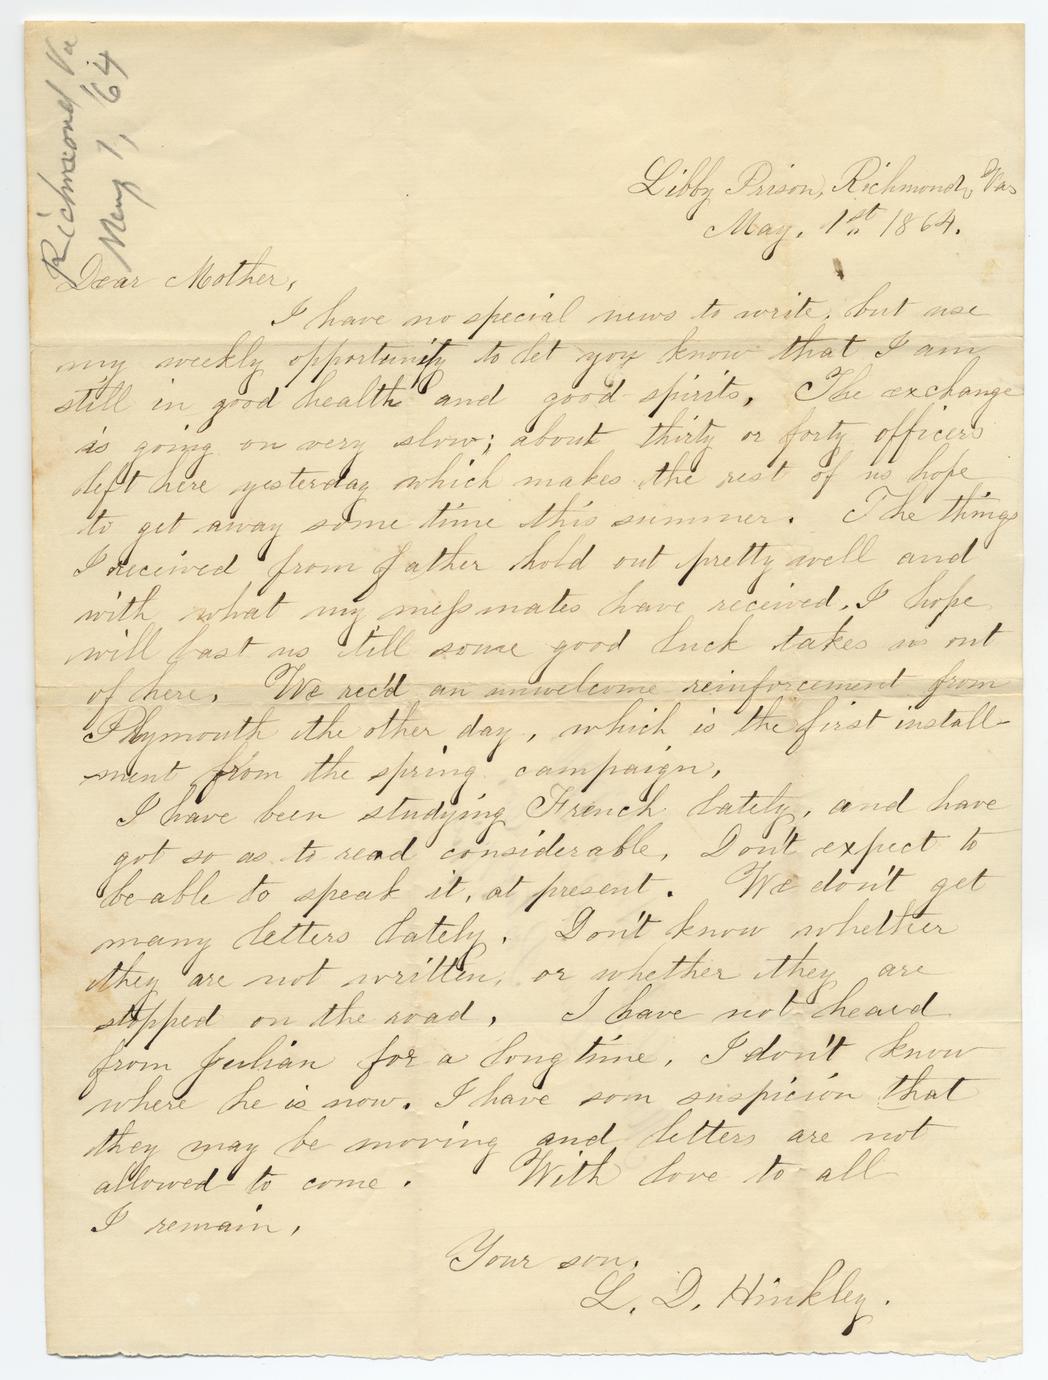 Richmond Va
May 1, '64
Libby Prison, Richmond, Va.
May. 1st 1864.
Dear Mother,
I have no special news to write, but use
my weekly opportunity to let you know that I am
still in good health and good spirits. The exchange
is going on very slow; about thirty or forty officers
left here yesterday which makes the rest of us hope
to get away some time this summer. The things
I received from father hold out pretty well and
with what my messmates have received, I hope
will last us till some good luck takes us out
of here. We rec'd an unwelcome reinforcement from
Plymouth the other day, which is the first install-
-ment from the spring campaign.
I have been studying French lately, and have
got so as to read considerable. Don't expect to
be able to speak it, at present. We don't get
many letters lately. Don't know whether
they are not written, or whether they are
stopped on the road. I have not heard
from Julian for a long time. I don't know
where he is now. I have som suspicion that
they may be moving and letters are not
allowed to come. With love to all
I remain,
Your son.
L. D. Hinkley.